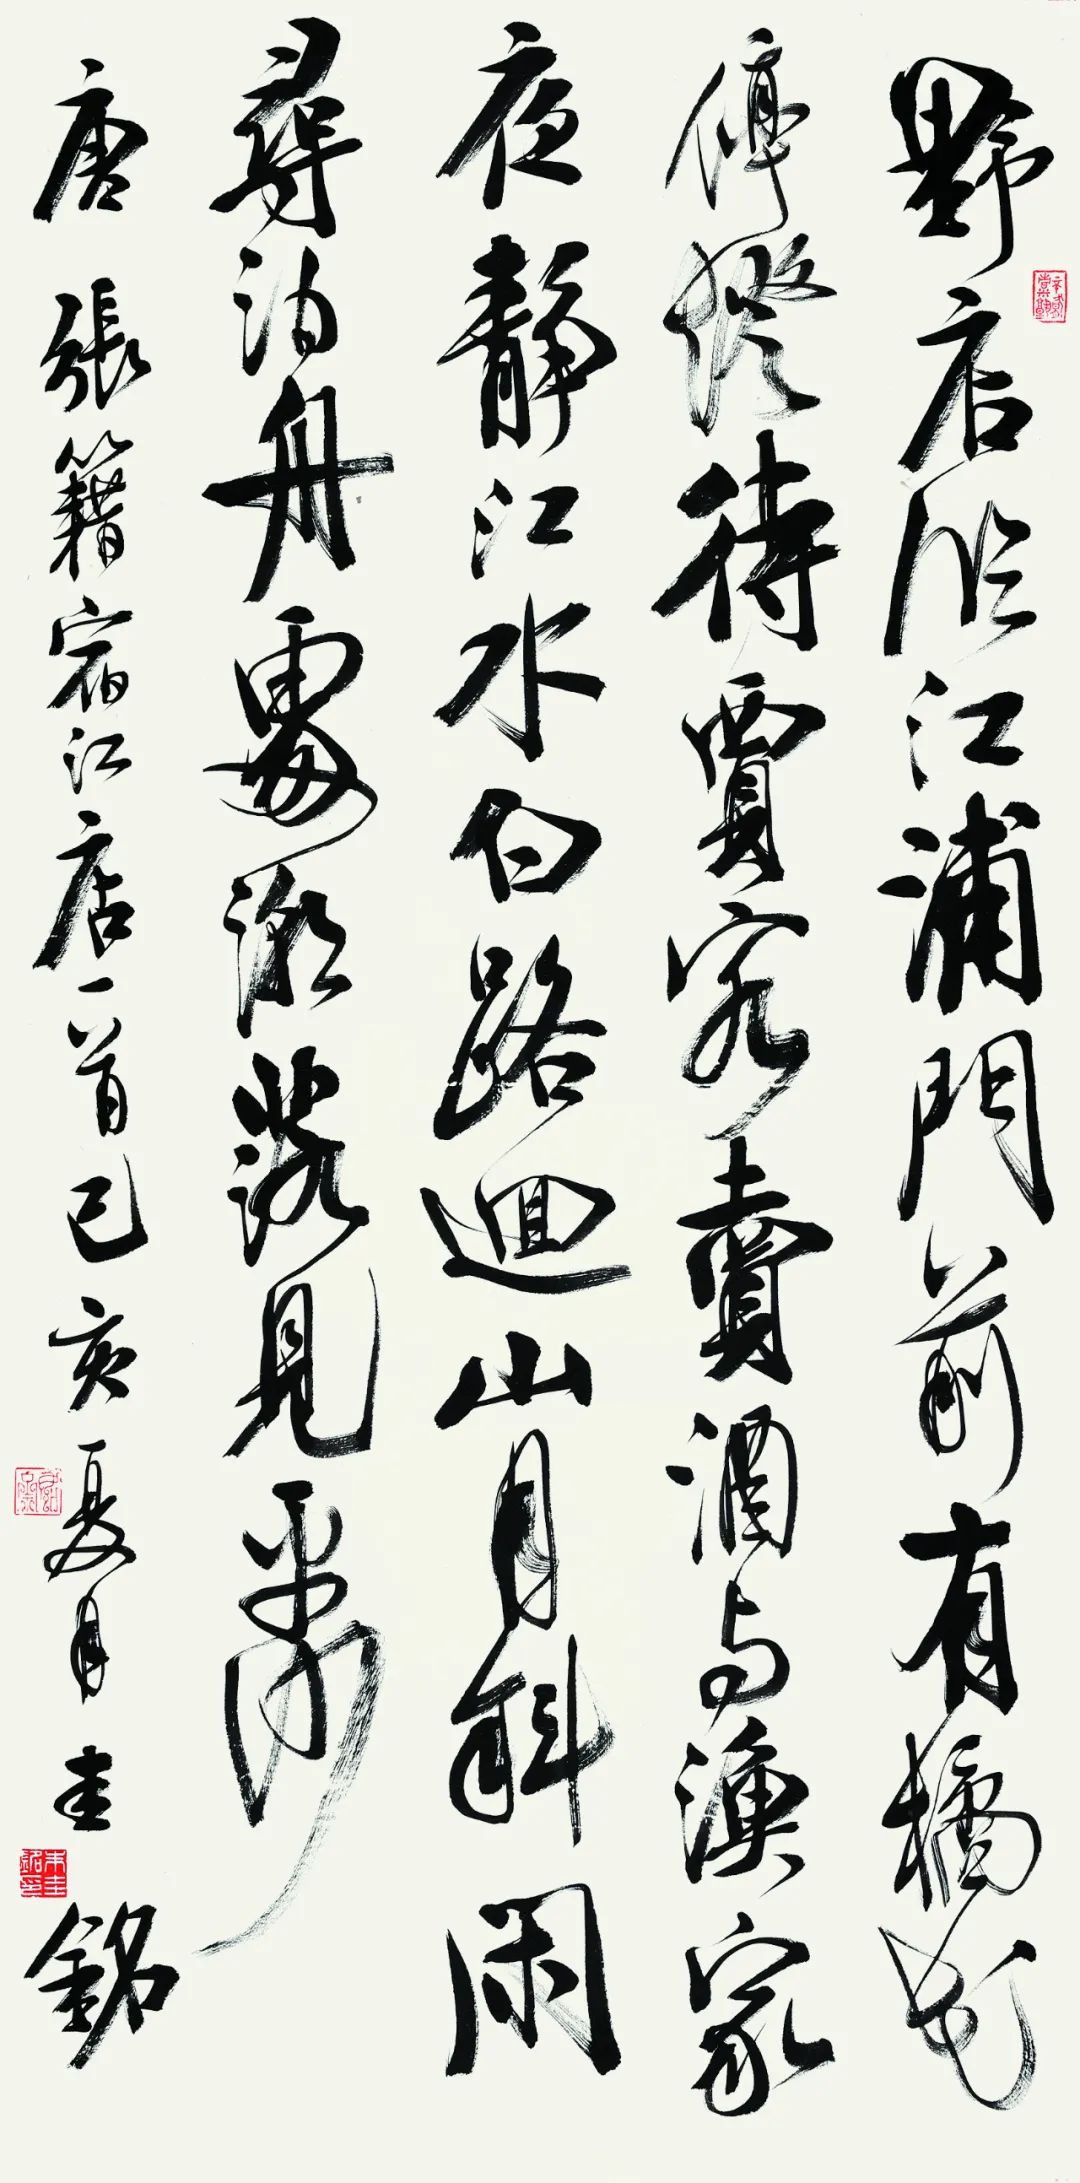 野店臨江浦門前有橘花
停燈待賈客賣酒与漁家
夜靜江水白路迴山月斜閑
尋泊舟處潮落見平沙
唐張籍宿江店一首己亥夏月圭銘
朱圭銘印